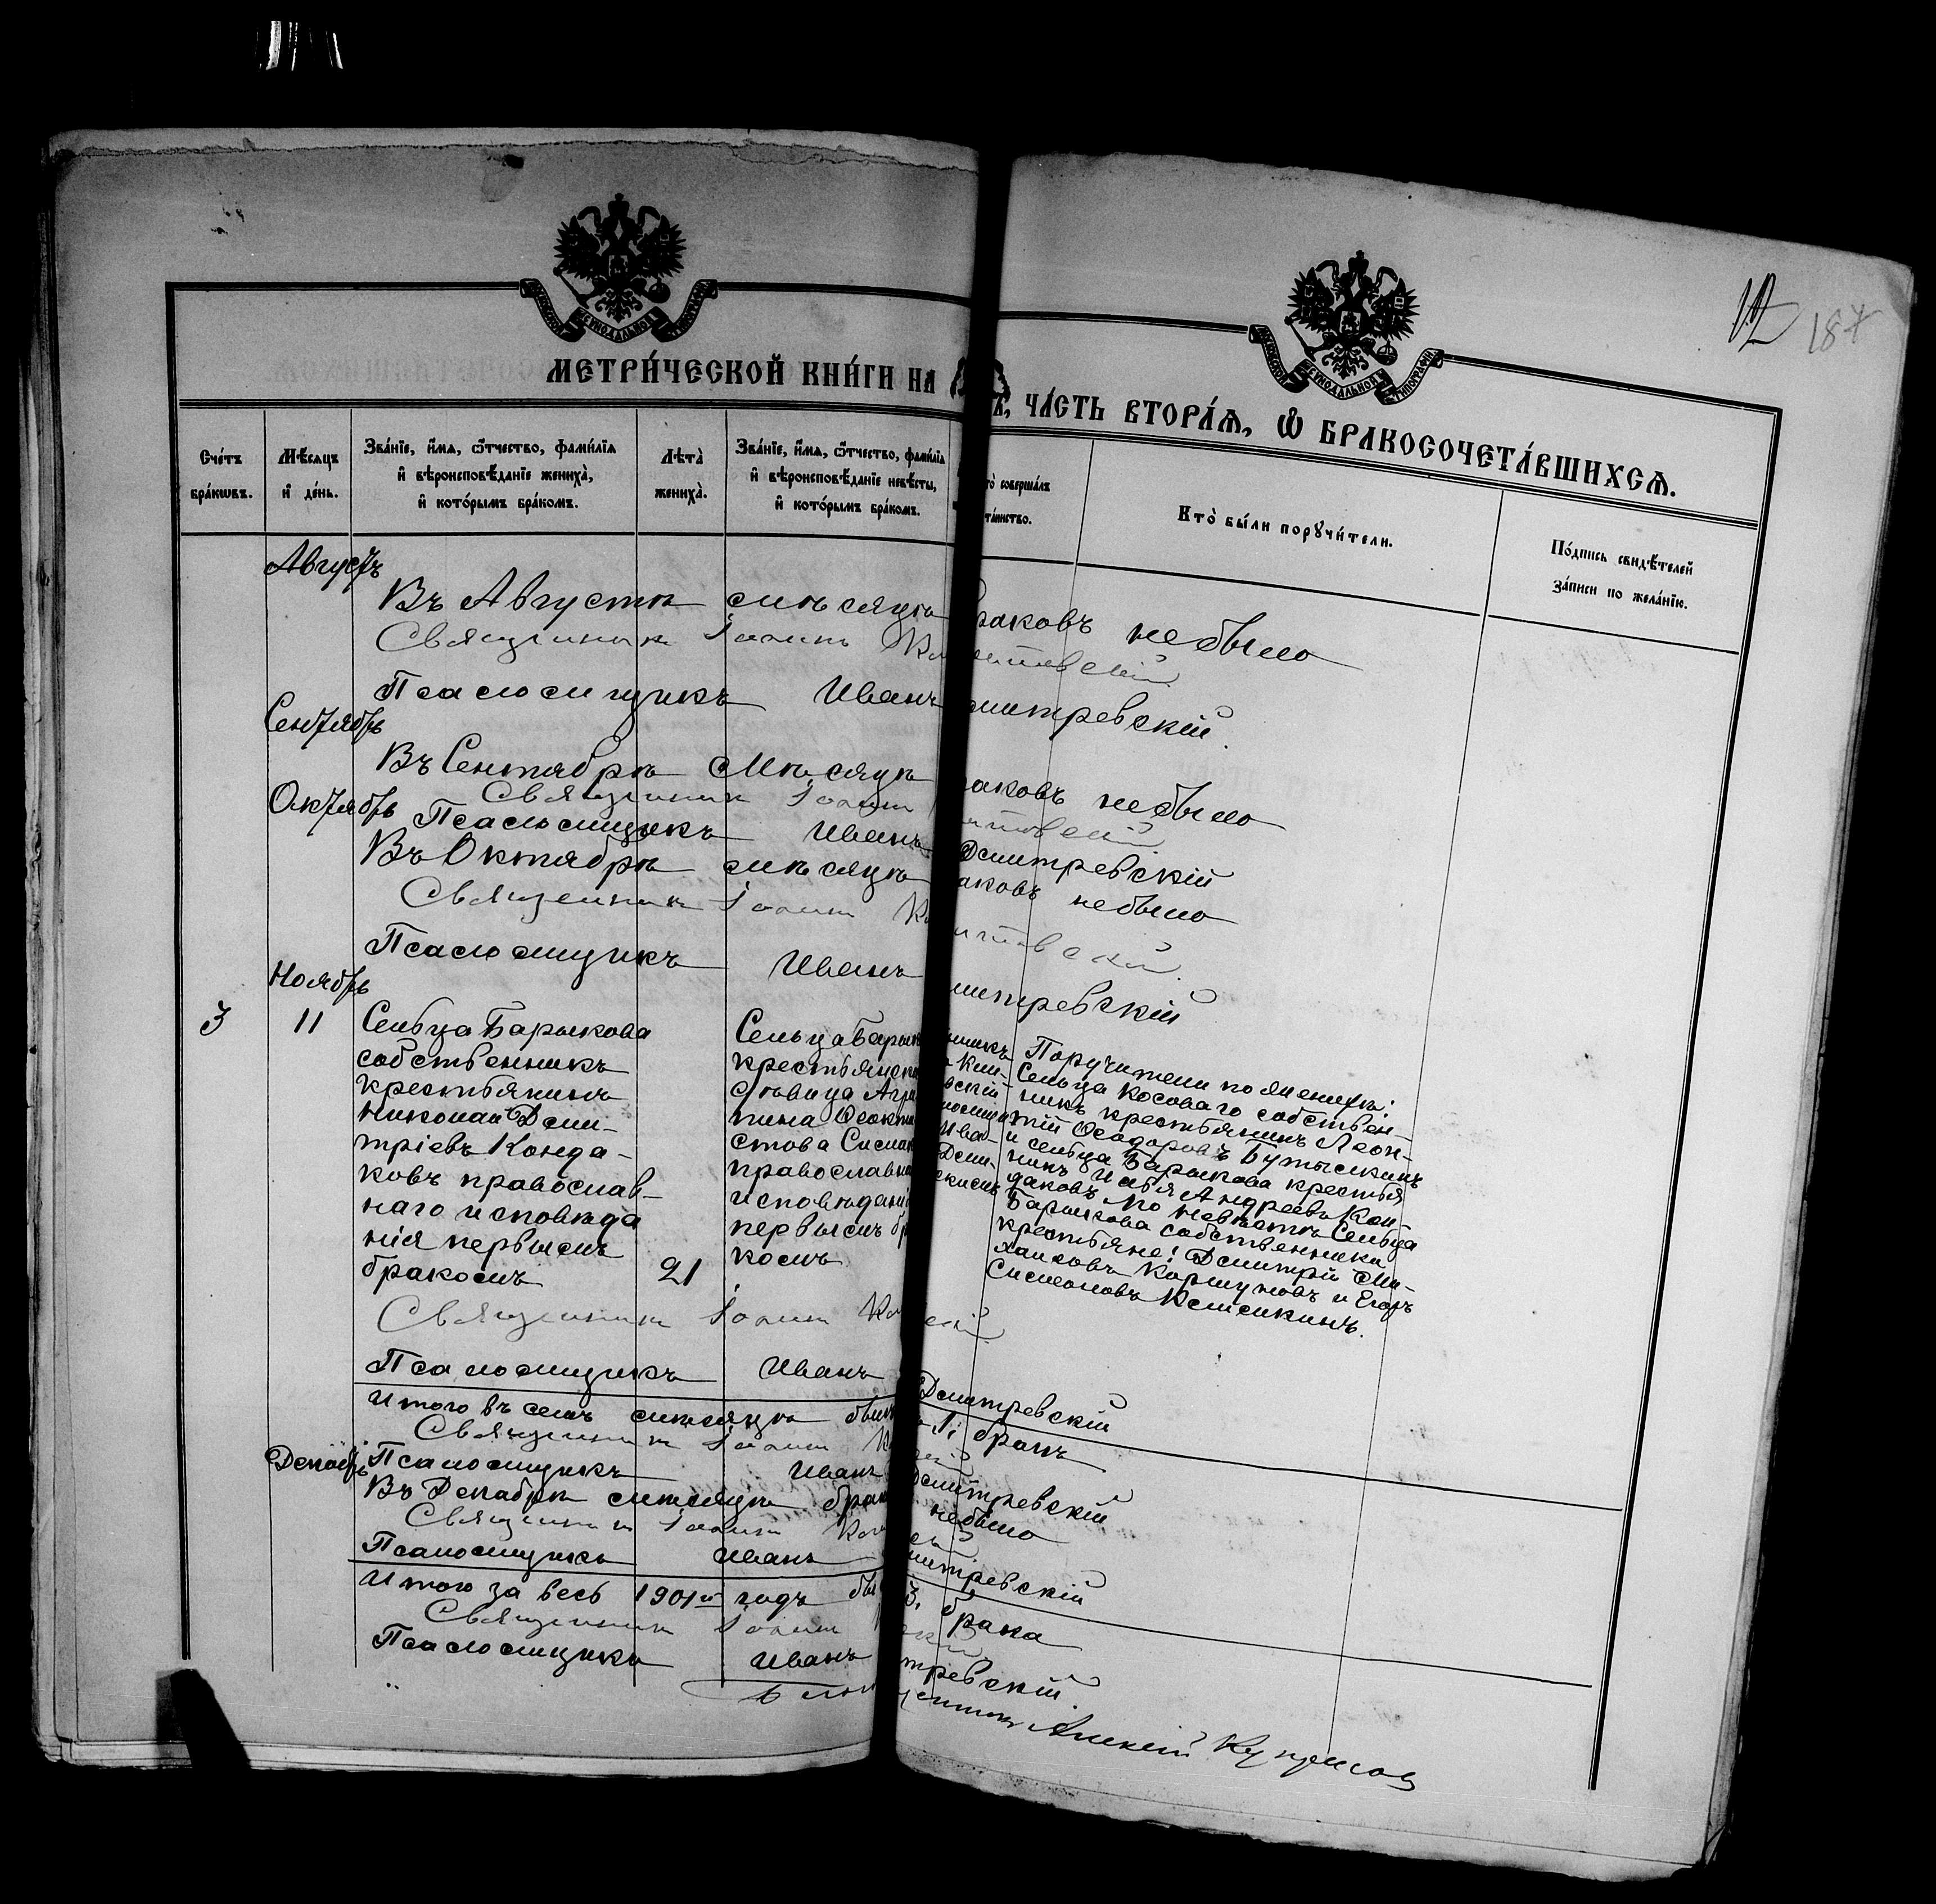 12 187
МЕТРИ́ЧЕСКОЙ КНИ́ГИ НА
ЧА́СТЬ ВТОРА́Я, Ѡ БРАКОСОЧЕТА́ВШИХСЯ.
Сче́тъ бра́кѡвъ.
Мѣ́сяцъ и҆ де́нь.
Зва́нїе, и҆́мя, ѻ҆́тчество, фами́лїя
и҆ вѣроисповѣ́данїе жениха̀,
и҆ кото́рымъ бра́комъ.
Лѣта̀ жениха̀.
Зва́нїе, и҆́мя, ѻ҆́тчество, фами́лїя
и҆ вѣроисповѣ́данїе невѣ́сты,
и҆ кото́рымъ бра́комъ.
соверша́лъ
та́инство.
Кто̀ бы́ли порꙋчи́тели.
По́дпись свидѣ́телей
за́писи по жела́нїю.
Августъ
Въ Августѣ мѣсяцѣ раковъ небыло
Священникъ Іоаннъ
Псаломщикъ Иванъ митревскій.
Сентябрь
Въ Сентябрѣ Мѣсяцѣ раковъ небыло
Священникъ Іоаннъ
Октябрь
Псаломщикъ Иванъ Дмитревскій
Въ Октябрѣ мѣсяцѣ аковъ небыло
Священникъ Іоаннъ
Псаломщикъ Иванъ митревскій
Ноябрь
3 11
Сельца Барыкова
собственникъ
крестьянинъ
Николай Дми-
тріевъ Конда-
ковъ православ-
наго исповѣда
нія первымъ
бракомъ
21
Сельца Барык
крестьянска
дѣвица Агра
пина Ѳеокти
стова Симак
православна
исповѣдані
первымъ бр
комъ
Ива-
Дми-
Поручители по женихѣ:
Сельца Косоваго собствен-
никъ крестьянинъ Леон-
тій Ѳеодоровъ Бутылкинъ
и сельца Барыкова крестья
нинъ Илья Андреевъ Кон-
даковъ По невѣстѣ Сельца
Барыкова собственники
крестьяне: Дмитрій Ми-
хаиловъ Коршуновъ и Егоръ
Симеоновъ Кемекинъ.
Священникъ Іоаннъ
Псаломщикъ Иванъ Дмитревскій
Итого въ семъ мѣсяцѣ былъ 1. бракъ
Священникъ Іоаннъ
Декабрь
Псаломщикъ Иванъ Дмитревскій
Въ Декабрѣ мѣсяцѣ брак небыло
Священникъ Іоаннъ
Псаломщикъ Иванъ митревскій
Итого за весь 1901й годъ бы 3. брака
Священникъ Іоаннъ
Псаломщикъ Иванъ тревскій.
Алексій